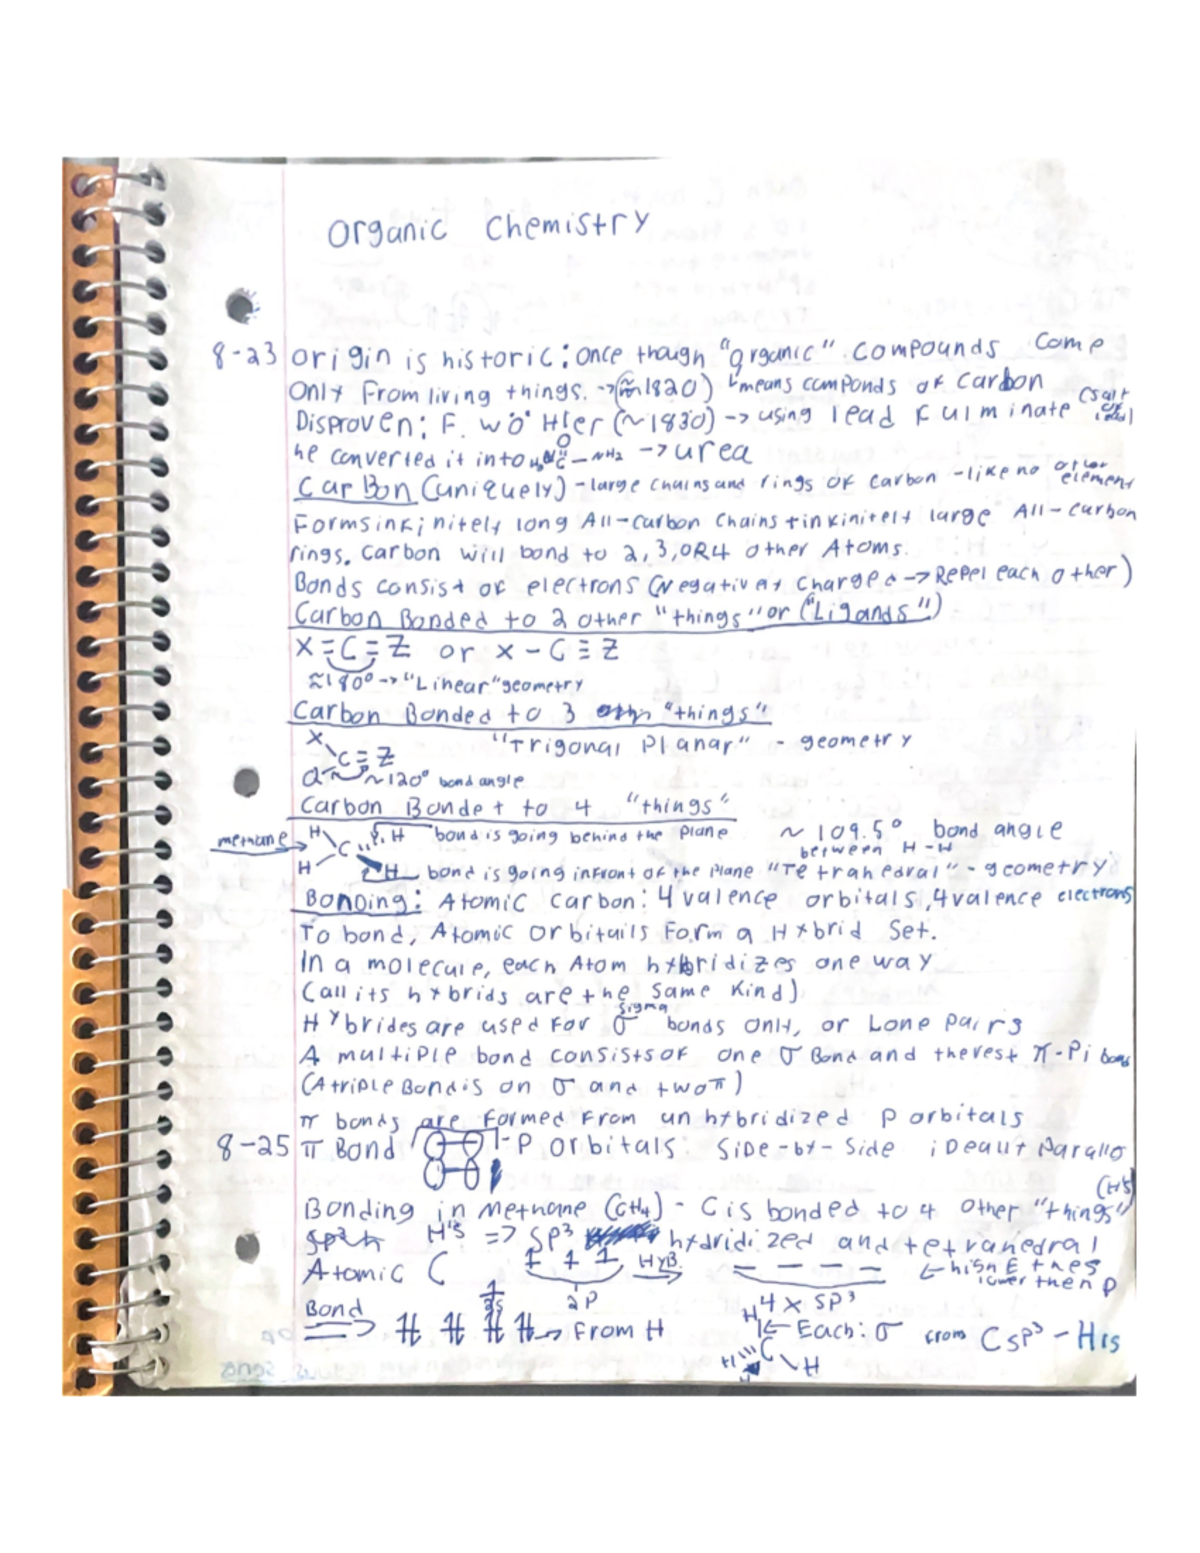 Organic Chemistry
8-23 origin is historic: once though "organic" compounds come
only from living things. -> (≈1820) means componds of carbon
Disproven: F. wö Hler (~1830) -> using lead fulminate (salt or
he converted it into H₂N-C-NH₂ -> urea
O
CarBon (uniquely) - large chains and rings of carbon - like no other element
Forms infinitely long All-carbon chains + infinitely large All-carbon
rings. carbon will bond to 2, 3, OR 4 other Atoms.
Bonds consist of electrons (Negatively charged -> Repel each other)
Carbon Bonded to 2 other "things" or ("Ligands")
X=C=Z or X-C≡Z
≈180° -> "Linear" geometry
Carbon Bonded to 3 "things"
X "Trigonal Planar" - geometry
C=Z
~120° bond angle
Carbon Bonded to 4 "things"
methane -> H C H bond is going behind the plane ~109.5° bond angle
between H-H
H H bond is going infront of the plane "Tetrahedral" - geometry
Bonding: Atomic carbon: 4 valence orbitals, 4 valence electrons
To bond, Atomic orbitails form a Hybrid Set.
In a molecule, each Atom hybridizes one way
(all its hybrids are the same kind)
sigma
Hybrides are used for σ bonds only, or Lone pairs
A multiple bond consists of one σ Bond and the rest π-Pi bond
(A triple Bond is on σ and two π)
π bonds are formed from unhybridized p orbitals
8-25 π Bond - P orbitals: Side-by-Side ideally Parallo
(H's)
Bonding in Methane (CH₄) - C is bonded to 4 other "things"
sp²h H's => sp³ hydridized and tetrahedral
Atomic C HYB. <- high E than s
2s 2P lower then p
4 x sp³
Bond -> From H H <- Each: σ from Csp³ - H1s
C
H H H